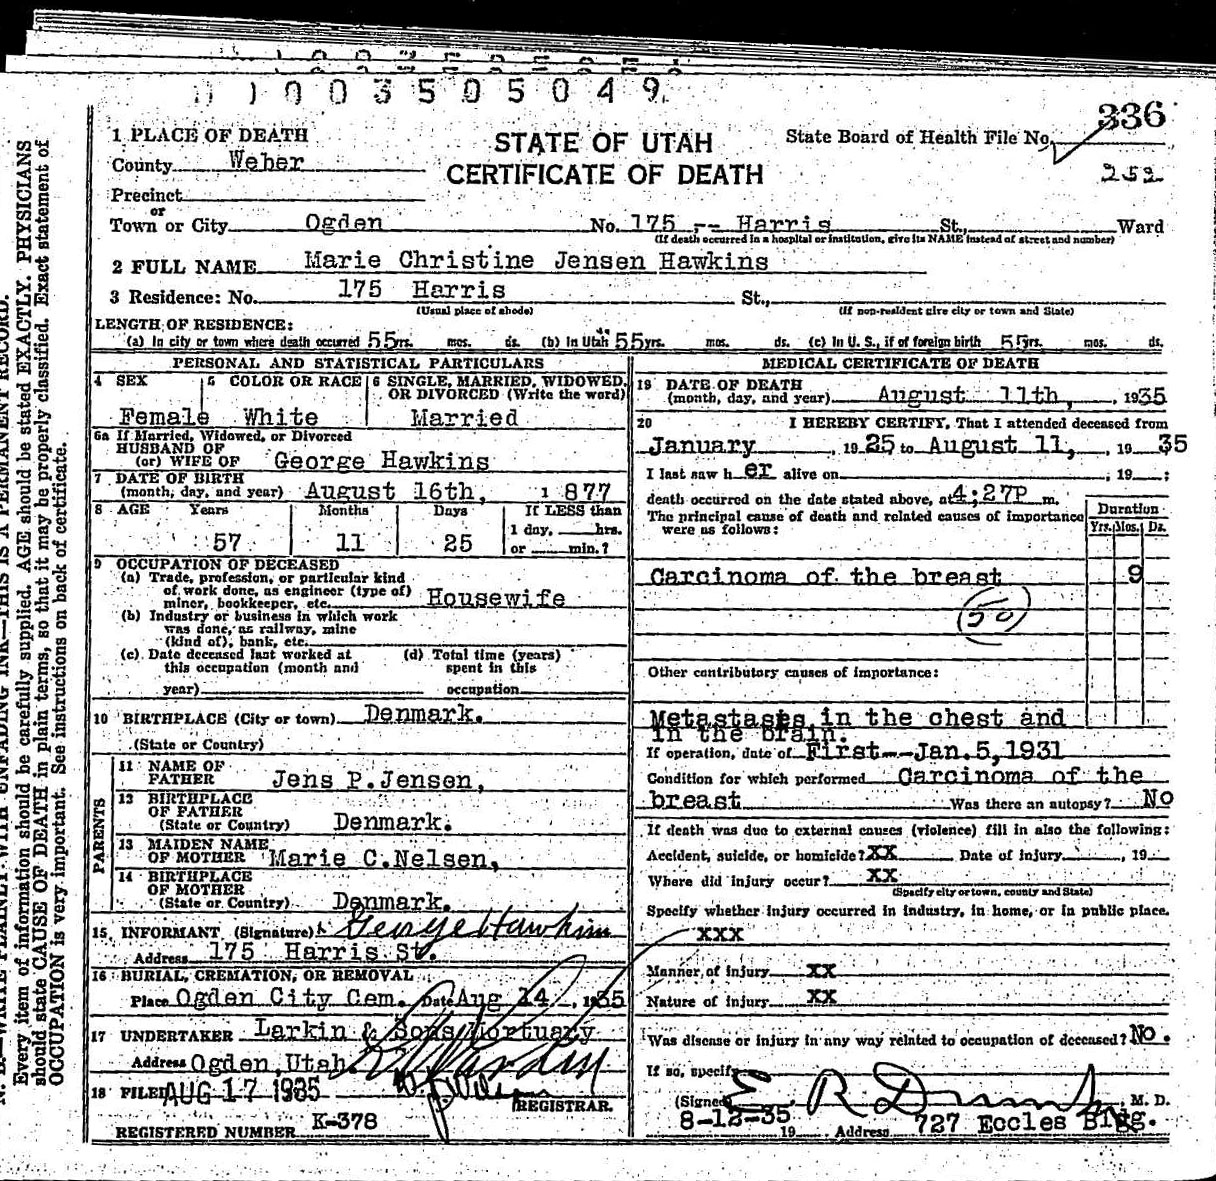 1003505049
336
1 PLACE OF DEATH
STATE OF UTAH
State Board of Health File No.
County Weber
CERTIFICATE OF DEATH
252
Precinct
or
Town or City Ogden No. 175 -- Harris St., Ward
(If death occurred in a hospital or institution, give its NAME instead of street and number)
2 FULL NAME Marie Christine Jensen Hawkins
3 Residence: No. 175 Harris St.,
(Usual place of abode) (If non-resident give city or town and State)
LENGTH OF RESIDENCE:
(a) In city or town where death occurred 55yrs. mos. ds. (b) In Utah 55yrs. mos. ds. (c) In U. S., if of foreign birth 55yrs. mos. ds.
PERSONAL AND STATISTICAL PARTICULARS
4 SEX 5 COLOR OR RACE 6 SINGLE, MARRIED, WIDOWED, OR DIVORCED (Write the word)
Female White Married
6a If Married, Widowed, or Divorced
HUSBAND OF
(or) WIFE OF George Hawkins
7 DATE OF BIRTH
(month, day, and year) August 16th, 1877
8 AGE Years Months Days If LESS than
1 day, hrs.
57 11 25 or min.?
9 OCCUPATION OF DECEASED
(a) Trade, profession, or particular kind
of work done, as engineer (type of)
miner, bookkeeper, etc. Housewife
(b) Industry or business in which work
was done, as railway, mine
(kind of), bank, etc.
(c) Date deceased last worked at
this occupation (month and
year)
(d) Total time (years)
spent in this
occupation
10 BIRTHPLACE (City or town) Denmark.
(State or Country)
PARENTS
11 NAME OF
FATHER Jens P. Jensen,
12 BIRTHPLACE
OF FATHER
(State or Country) Denmark.
13 MAIDEN NAME
OF MOTHER Marie C. Nelsen,
14 BIRTHPLACE
OF MOTHER
(State or Country) Denmark.
15 INFORMANT (Signature) George Hawkins
Address 175 Harris St.
16 BURIAL, CREMATION, OR REMOVAL
Place Ogden City Cem. Date Aug 14, 1935
17 UNDERTAKER Larkin & Sons Mortuary
Address Ogden, Utah.
18 FILED AUG 17 1935
REGISTRAR.
REGISTERED NUMBER K-378
MEDICAL CERTIFICATE OF DEATH
19 DATE OF DEATH
(month, day, and year) August 11th, , 1935
20 I HEREBY CERTIFY, That I attended deceased from
January , 1925 to August 11, , 1935
I last saw her alive on , 19 ;
death occurred on the date stated above, at 4;27P m.
The principal cause of death and related causes of importance
were as follows:
Duration
Yrs. Mos. Ds.
Carcinoma of the breast 9
50
Other contributory causes of importance:
Metastasis in the chest and
in the brain.
If operation, date of First--Jan.5,1931
Condition for which performed Carcinoma of the
breast Was there an autopsy? No
If death was due to external causes (violence) fill in also the following:
Accident, suicide, or homicide? XX Date of injury , 19
Where did injury occur? XX
(Specify city or town, county and State)
Specify whether injury occurred in industry, in home, or in public place.
XXX
Manner of injury XX
Nature of injury XX
Was disease or injury in any way related to occupation of deceased? No.
If so, specify
(Signed) E R , M. D.
8-12-35 19 Address 727 Eccles Bldg.
N. B.—WRITE PLAINLY WITH UNFADING INK—THIS IS A PERMANENT RECORD.
Every item of information should be carefully supplied. AGE should be stated EXACTLY. PHYSICIANS
should state CAUSE OF DEATH in plain terms, so that it may be properly classified. Exact statement of
OCCUPATION is very important. See instructions on back of certificate.